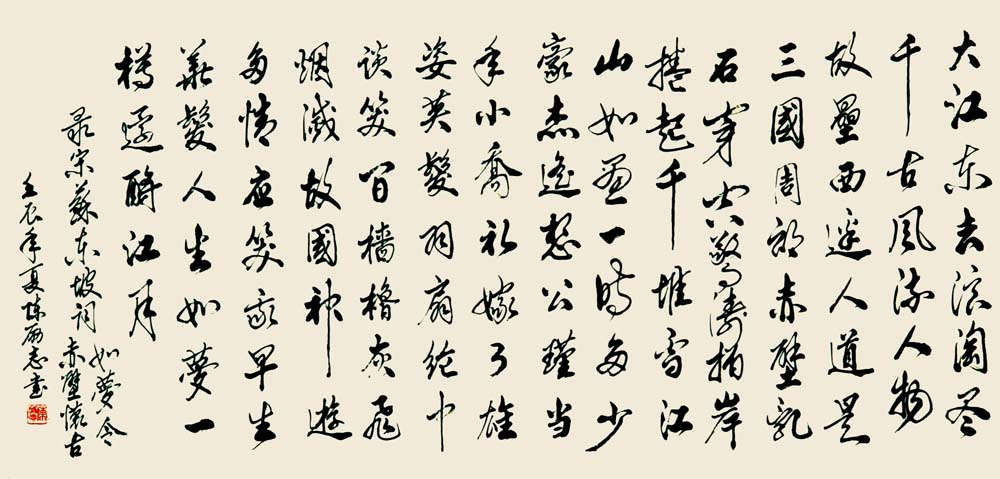 大江东去浪淘尽
千古风流人物
故壘西邊人道是
三國周郎赤壁乱
石穿空驚濤拍岸
捲起千堆雪江
山如画一时多少
豪杰遥想公瑾当
年小喬初嫁了雄
姿英發羽扇纶巾
谈笑间檣櫓灰飛
烟滅故國神遊
多情应笑我早生
華髮人生如夢一
樽還酹江月
录宋蘇东坡词如夢令
赤壁懷古
壬辰年夏陈志书